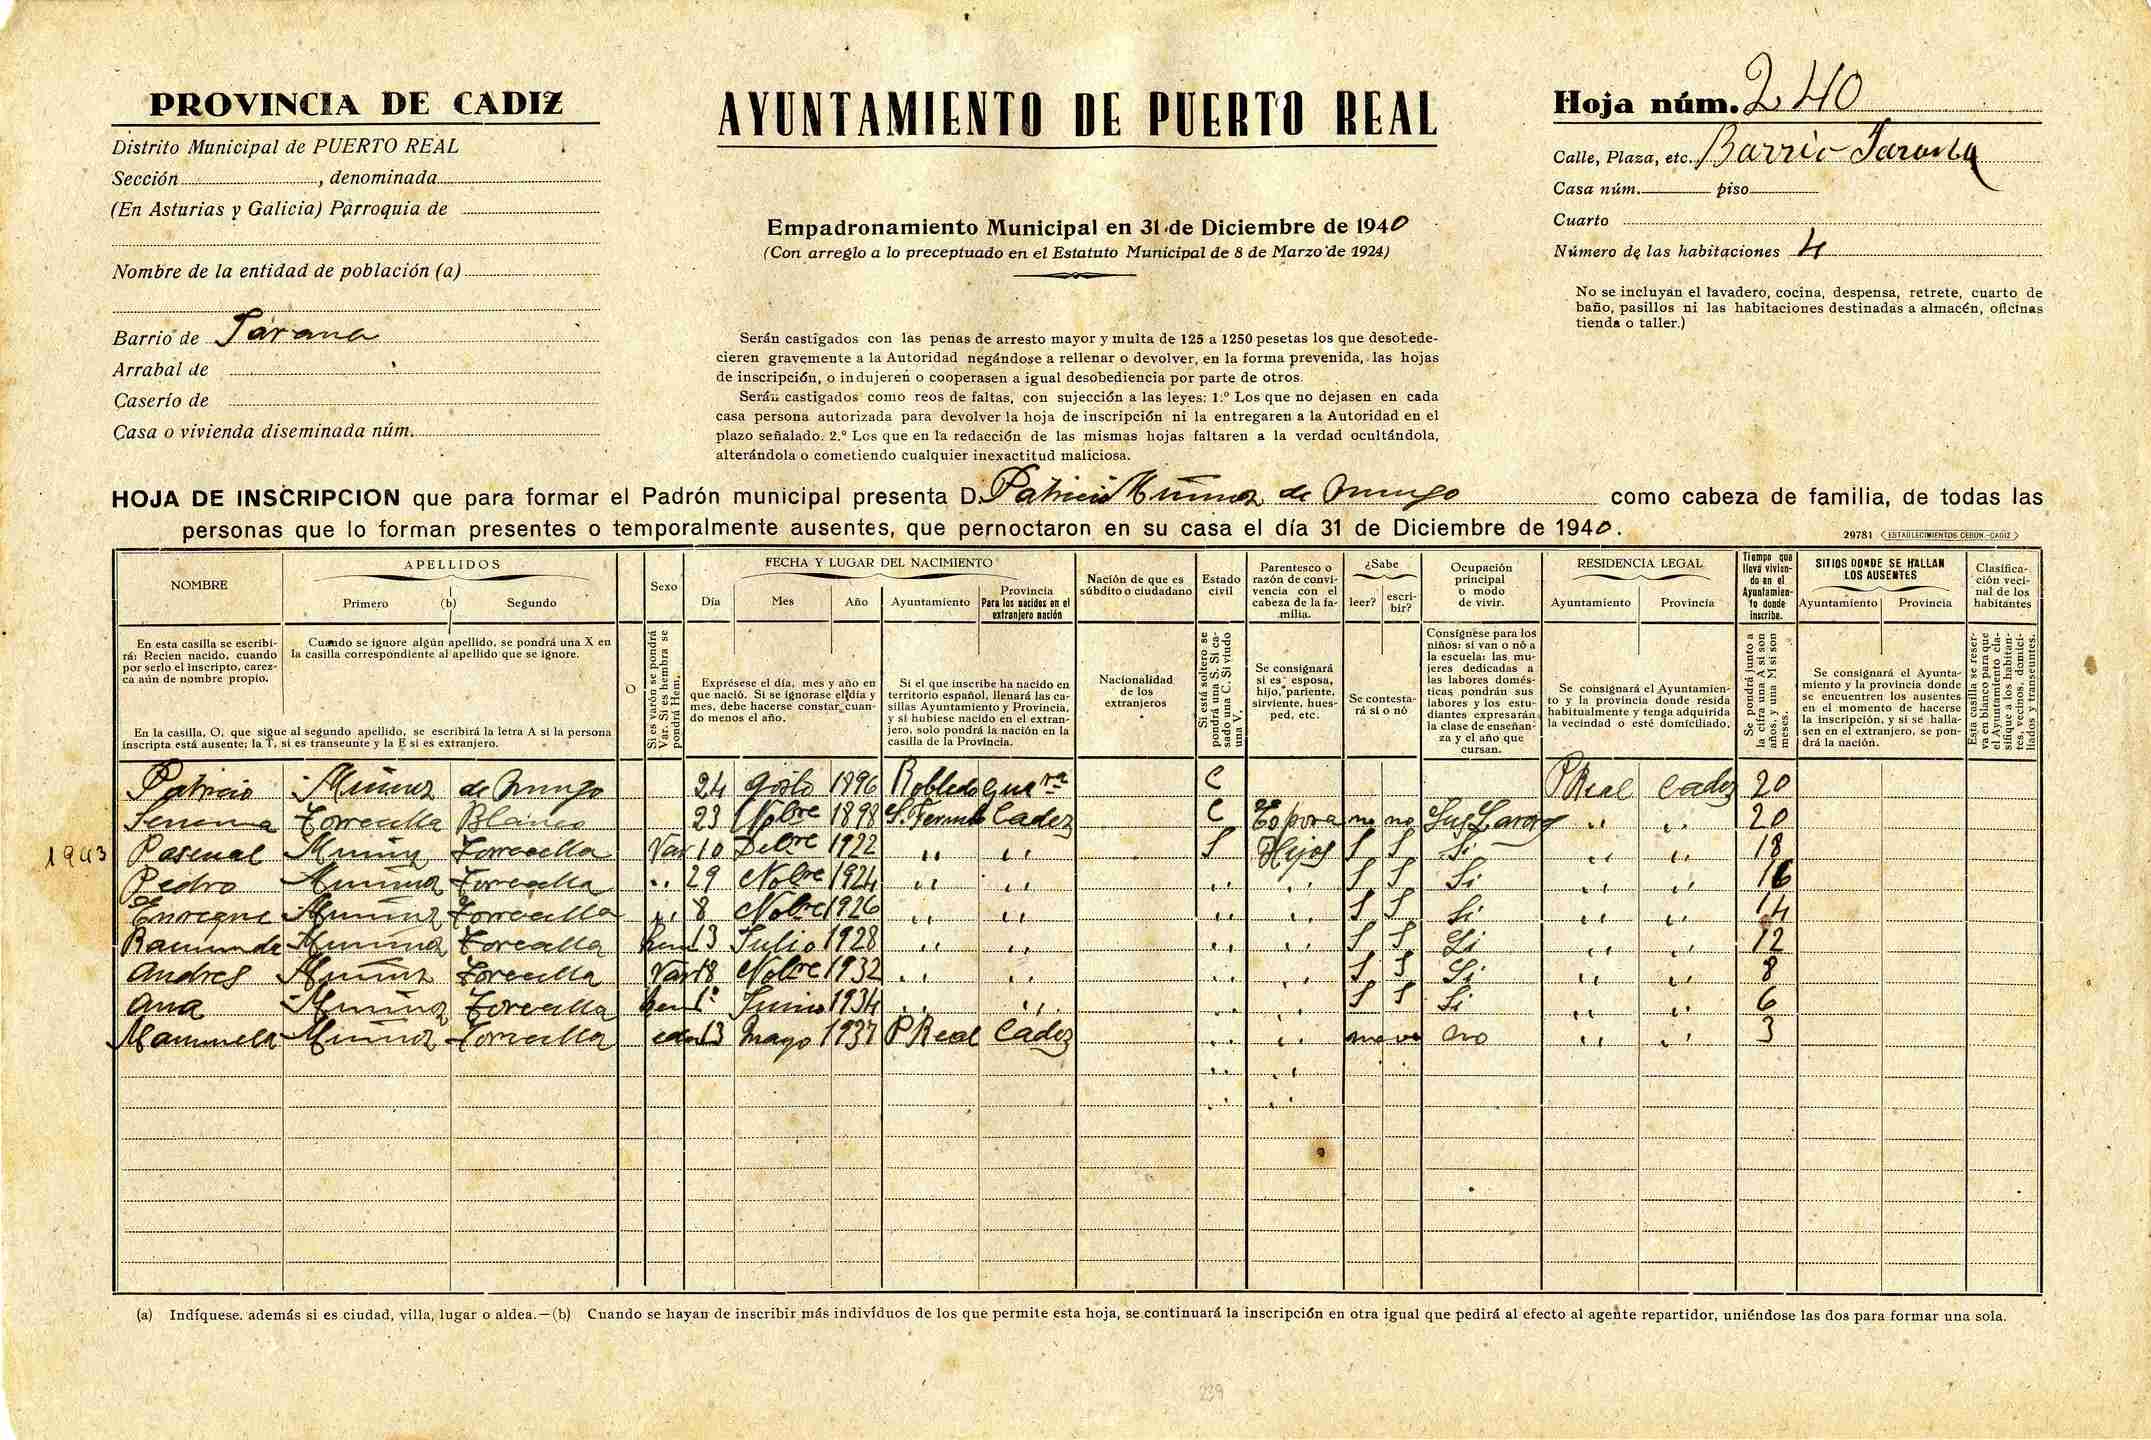 PROVINCIA DE CADIZ
Distrito Municipal de PUERTO REAL
Sección , denominada
(En Asturias y Galicia) Parroquia de
Nombre de la entidad de población (a)
Barrio de Jarana
Arrabal de
Caserío de
Casa o vivienda diseminada núm.
AYUNTAMIENTO DE PUERTO REAL
Empadronamiento Municipal en 31 de Diciembre de 1940
(Con arreglo a lo preceptuado en el Estatuto Municipal de 8 de Marzo de 1924)
Serán castigados con las penas de arresto mayor y multa de 125 a 1250 pesetas los que desobede-
cieren gravemente a la Autoridad negándose a rellenar o devolver, en la forma prevenida, las hojas
de inscripción, o indujeren o cooperasen a igual desobediencia por parte de otros.
Serán castigados como reos de faltas, con sujección a las leyes: 1.º Los que no dejasen en cada
casa persona autorizada para devolver la hoja de inscripción ni la entregaren a la Autoridad en el
plazo señalado. 2.º Los que en la redacción de las mismas hojas faltaren a la verdad ocultándola,
alterándola o cometiendo cualquier inexactitud maliciosa.
Hoja núm. 240
Calle, Plaza, etc. Barrio Jarana
Casa núm. piso
Cuarto
Número de las habitaciones 4
No se incluyan el lavadero, cocina, despensa, retrete, cuarto de
baño, pasillos ni las habitaciones destinadas a almacén, oficinas
tienda o taller.)
HOJA DE INSCRIPCION que para formar el Padrón municipal presenta D. Patricio Muñoz de Mingo como cabeza de familia, de todas las
personas que lo forman presentes o temporalmente ausentes, que pernoctaron en su casa el día 31 de Diciembre de 1940.
29781 ESTABLECIMIENTOS CERON.-CADIZ
NOMBRE
APELLIDOS
Primero (b) Segundo
Sexo
FECHA Y LUGAR DEL NACIMIENTO
Día Mes Año Ayuntamiento
Provincia
Para los nacidos en el
extranjero nación
Nación de que es
súbdito o ciudadano
Estado
civil
Parentesco o
razón de convi-
vencia con el
cabeza de la fa-
milia.
¿Sabe
leer? escri-
bir?
Ocupación
principal
o modo
de vivir.
RESIDENCIA LEGAL
Ayuntamiento Provincia
Tiempo que
lleva vivien-
do en el
Ayuntamien-
to donde
inscribe.
SITIOS DONDE SE HALLAN
LOS AUSENTES
Ayuntamiento Provincia
Clasifica-
ción veci-
nal de los
habitantes
En esta casilla se escribi-
rá: Recien nacido, cuando
por serlo el inscripto, carez-
ca aún de nombre propio.
Cuando se ignore algún apellido, se pondrá una X en
la casilla correspondiente al apellido que se ignore.
En la casilla, O, que sigue al segundo apellido, se escribirá la letra A si la persona
inscripta está ausente; la T, si es transeunte y la E si es extranjero.
O
Si es varón se pondrá
Var. Si es hembra se
pondrá Hem.
Exprésese el día, mes y año en
que nació. Si se ignorase el día y
mes, debe hacerse constar cuan-
do menos el año.
Si el que inscribe ha nacido en
territorio español, llenará las ca-
sillas Ayuntamiento y Provincia,
y si hubiese nacido en el extran-
jero, solo pondrá la nación en la
casilla de la Provincia.
Nacionalidad
de los
extranjeros
Si está soltero se
pondrá una S. Si ca-
sado una C. Si viudo
una V.
Se consignará
si es esposa,
hijo, pariente,
sirviente, hues-
ped, etc.
Se contesta-
rá si o nó
Consígnese para los
niños: si van o nó a
la escuela: las mu-
jeres dedicadas a
las labores domés-
ticas pondrán sus
labores y los estu-
diantes expresarán
la clase de enseñan-
za y el año que
cursan.
Se consignará el Ayuntamien-
to y la provincia donde resida
habitualmente y tenga adquirida
la vecindad o esté domiciliado.
Se pondrá junto a
la cifra una A si son
años, y una M si son
meses.
Se consignará el Ayunta-
miento y la provincia donde
se encuentren los ausentes
en el momento de hacerse
la inscripción, y si se halla-
sen en el extranjero, se pon-
drá la nación.
Esta casilla se reser-
va en blanco para que
el Ayuntamiento cla-
sifique a los habitan-
tes, vecinos, domici-
liados y transeuntes.
Patricio Muñoz de Mingo 24 Gosto 1896 Robledo Guara C P Real Cadez 20
Torrecilla Blanco 23 Nobre 1898 S. Fernado Cadez C Espora no no Sus Lavores " " 20
1943 Pascual Muñoz Torrecilla Var 10 Debre 1922 " " S Hijos S S Si " " 18
Pedro Muñoz Torrecilla " 29 Nobre 1924 " " " " S S Si " " 16
Enreque Muñoz Torrecilla " 8 Nobre 1926 " " " " S S Si " " 14
Raimunda Muñoz Torecilla hem 13 Julio 1928 " " " " S S Si " " 12
Andres Muñoz Torecilla Var 18 Nobre 1932 " " " " S S Si " " 8
Ana Muñoz Torecilla hem 1º Junio 1934 " " " " S S Si " " 6
Manuela Muñoz Torrecilla 13 Mayo 1937 P Real Cadez " " no " " 3
" "
" "
(a) Indíquese. además si es ciudad, villa, lugar o aldea.—(b) Cuando se hayan de inscribir más individuos de los que permite esta hoja, se continuará la inscripción en otra igual que pedirá al efecto al agente repartidor, uniéndose las dos para formar una sola.
239